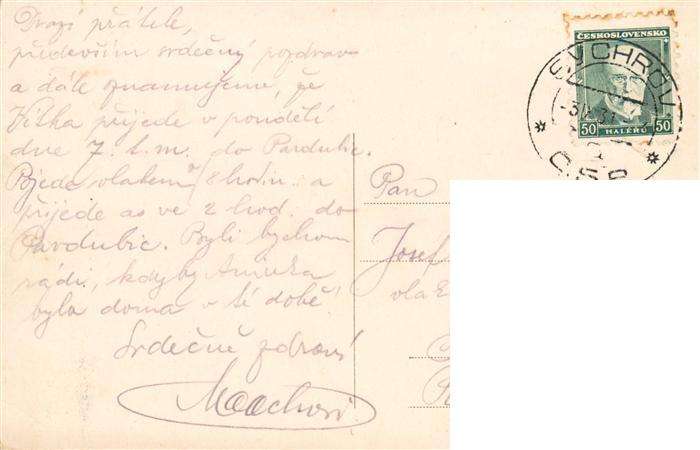 Drazí přátelé,
především srdečný pozdrav
a dále oznamujeme, že
přijede v pondělí
dne 7. t. m. do Pardubic.
Pojede vlakem 8 hodin. a
přijede as ve 2 hod. do
Pardubic. Byli bychom
rádi, kdyby
byla doma v té době!
Srdečně zdraví
Pan
Josef
ČESKOSLOVENSKO
50 HALÉŘŮ 50
SYCHROV
Č.S.R.